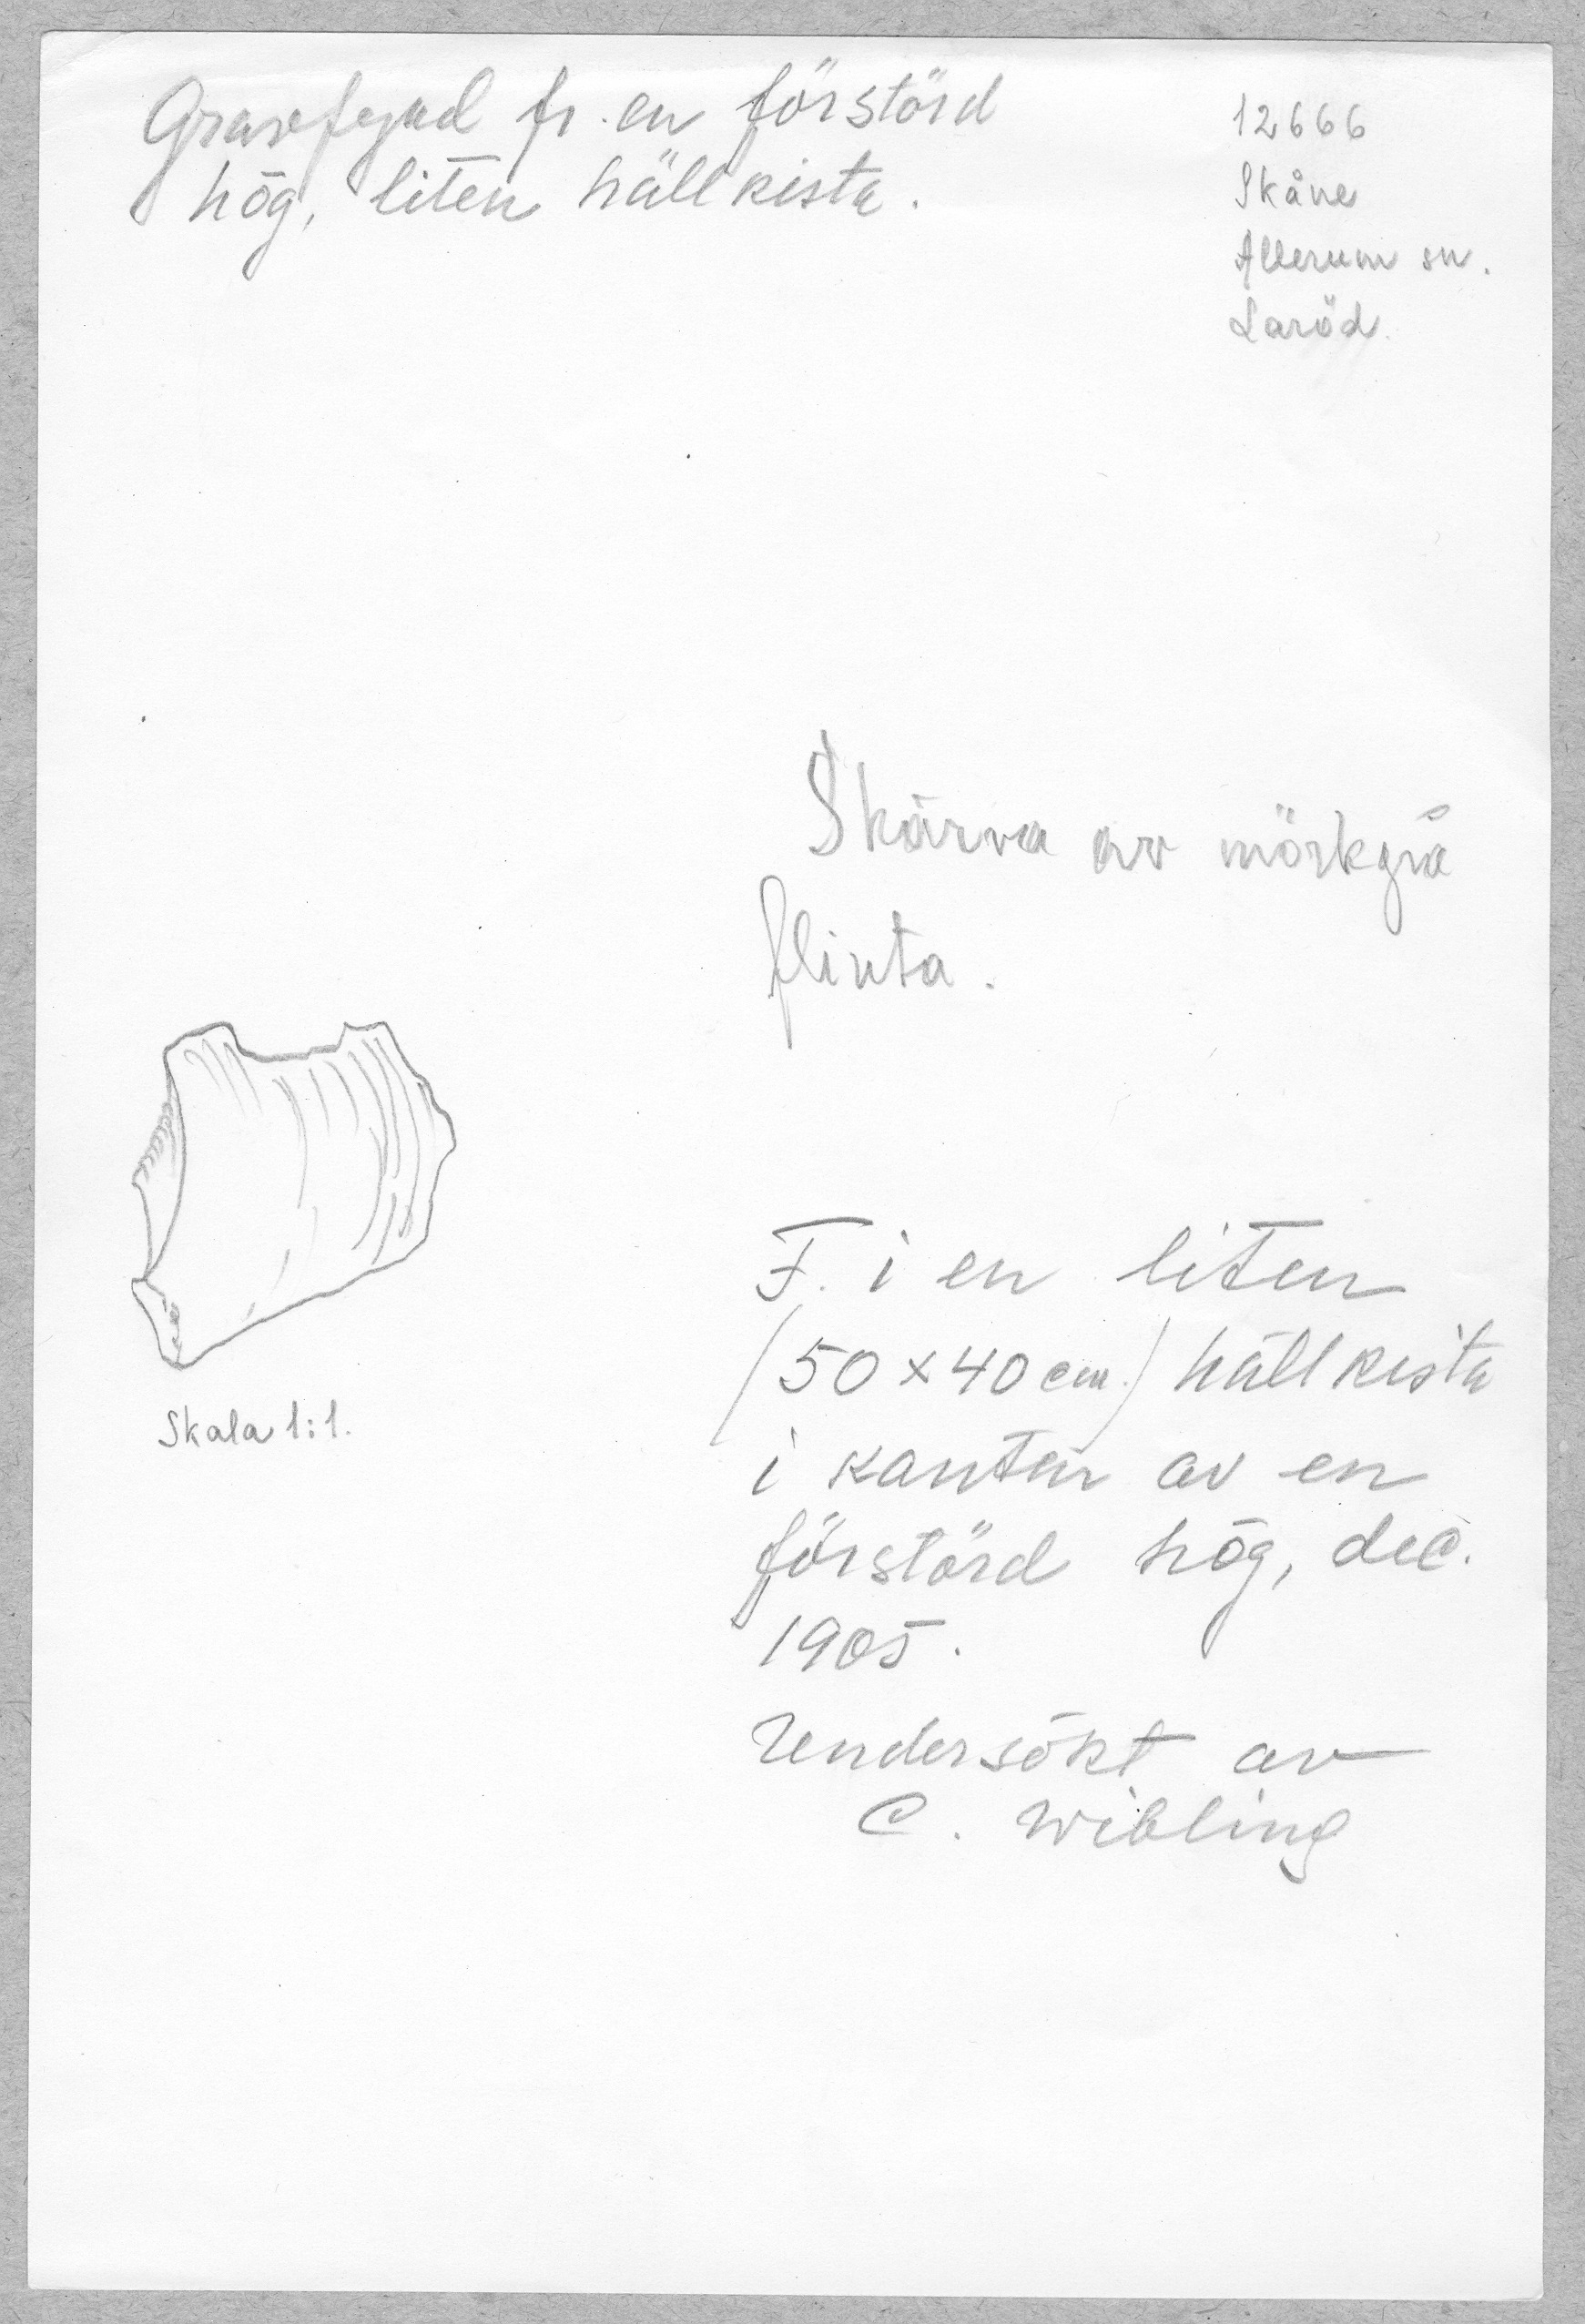 Gravfynd fr. en förstörd
hög, liten hällkista.
12666
Skåne
Allerum sn.
Laröd.
Skärva av mörkgrå
flinta.
Skala 1:1.
F. i en liten
(50 x 40 cm.) hällkista
i kanten av en
förstörd hög, dec.
1905.
Undersökt av
C. Wibling